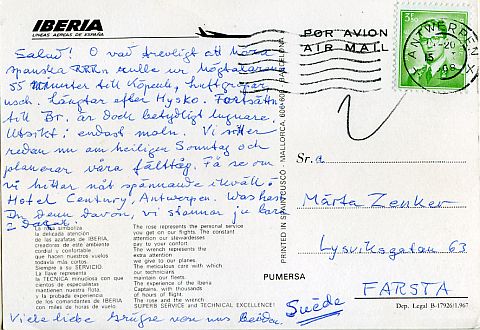 IBERIA
LINEAS AEREAS DE ESPAÑA
PAR AVION
AIR MAIL
ANTWERPEN X
3F
Salud! O vad trevligt att höra
spanska RRR:n rulla ur högtalaren
55 minuter till Köpenh,
usch. Längtar efter Hysko. Fortsättn
till Br. är dock betydligt lugnare.
Utsikt: endast moln. Vi sitter
redan nu am heiliger Sonntag och
planerar våra fälttåg. Få se om
vi hittar nåt spännande ikväll.
Hotel Century, Antwerpen. Was hast
Du Denn Davon, vi stannar ju bara
2 dagar.
La rosa simboliza
la delicada atención
de las azafatas de IBERIA,
creadoras de este ambiente
cordial y confortable
que hacen nuestros vuelos
todavía más cortos.
Siempre a su SERVICIO.
La llave representa
la TECNICA minuciosa con que
cientos de especialistas
mantienen nuestra flota
y la probada experiencia
de los comandantes de IBERIA
con miles de horas de vuelo.
The rose represents the personal service
you get on our flights. The constant
attention our stewardesses
pay to your comfort.
The wrench represents the
extra attention
we give to our planes.
The meticulous care with which
our technicians
maintain our fleets.
The experience of the Iberia
Captains, with thousands
of hours of flight.
The rose and the wrench.
SUPERB SERVICE and TECHNICAL EXCELLENCE!
Viele liebe Grüsse von uns Beiden.
PRINTED IN SPAIN BUSCO - MALLORCA, 606-608 - BARCELONA
PUMERSA
Sr.a
Märta Zenker
Lysviksgatan 63
FARSTA
Suède
Dep. Legal B-17926/1.967